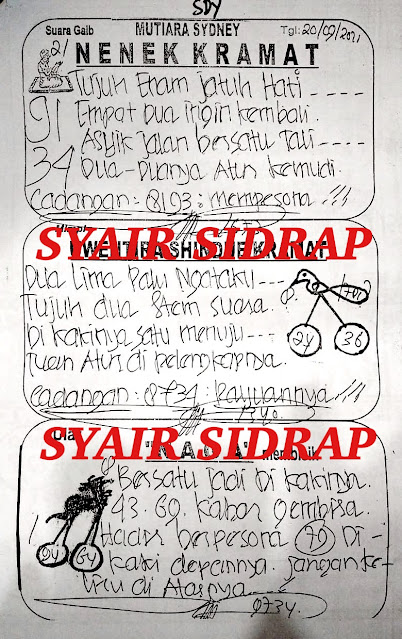 SDY
Suara Gaib MUTIARA SYDNEY Tgl: 20/09/2021
NENEK KRAMAT
21
91
34
Tujuh Enam jatuh Hati ----
Empat Dua ingin kembali.
Asyik jalan bersatu Tali ----
Dua-Duanya Atur kemudi.
Cadangan: 8193: mempesona !!!
SYAIR SIDRAP
KRAMAT
Dua Lima Palu Ngataku ---
Tujuh dua stem suasa.
Di kakinya satu menuju ---
Tuan Atur di pelengkapnya.
24
36
Cadangan: 8734: Rayuannya !!!
SYAIR SIDRAP
Ular "NAGA" membisik
Bersatu jadi Di kakinya.
43. 69. kabar gembira.
Harus berpesona 79 Di-
kaki depannya. jangan ke-
liru di Atasnya ---
64
8734.